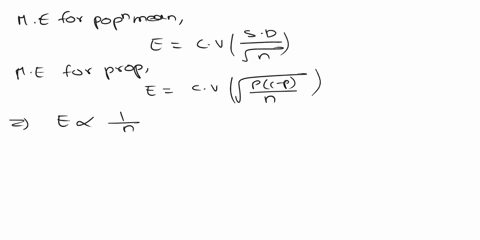 M.E for popⁿ mean,
E = C.V (S.D/√n)
M.E for prop,
E = C.V (√(P(1-P)/n))
=> E ∝ 1/n